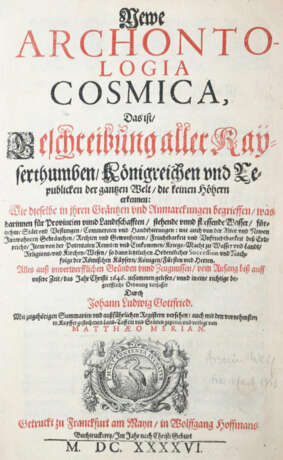 Newe
ARCHONTO-
LOGIA
COSMICA,
Das ist/
Beschreibung aller Kay-
serthumben/ Königreichen vnd Re-
publicken der gantzen Welt/ die keinen Höhern
erkennen:
Wie dieselbe in ihren Gräntzen vnd Anmarckungen begrieffen/ was
darinnen für Provincien vnnd Landschafften/ stehende vnnd fliessende Wasser/ für-
nehme/ Stätt vnd Vestungen/ Commercien vnd Handthierungen: wie auch von der Alten vnd Newen
Innwohnern Gebräuchen/ Rechten vnd Gewonheiten/ Fruchtbarkeit vnd Vnfruchtbarkeit deß Erd-
reichs/ Item von der Potentaten Renten vnd Einkommen/ Kriegs-Macht zu Wasser vnd Landt/
Religion vnd Kirchen-Wesen/ so dann letzlichen Ordentlicher Succession vnd Nach-
folge der Römischen Käysern/ Königen/ Fürsten vnd Herren.
Alles auß vnverwerfflichen Gründen vnnd Zeugnussen/ vom Anfang biß auff
unsere Zeit/ das Jahr Christi 1646. zusammen gelesen/ vnnd in eine richtige be-
greiffliche Ordnung verfasset
Durch
Johann Ludwig Gottfried.
Mit zugehörigen Summarien vnd außführlichen Registern versehen: auch mit den vornembsten
in Kupffer gestochenen Land-Taffeln vnd Stätten gezieret vnd verlegt von
MATTHÆO MERIAN.
Getruckt zu Franckfurt am Mayn/ in Wolffgang Hoffmans
Buchtruckerey/ Im Jahr nach Christi Geburt
M. DC. XXXXVI.